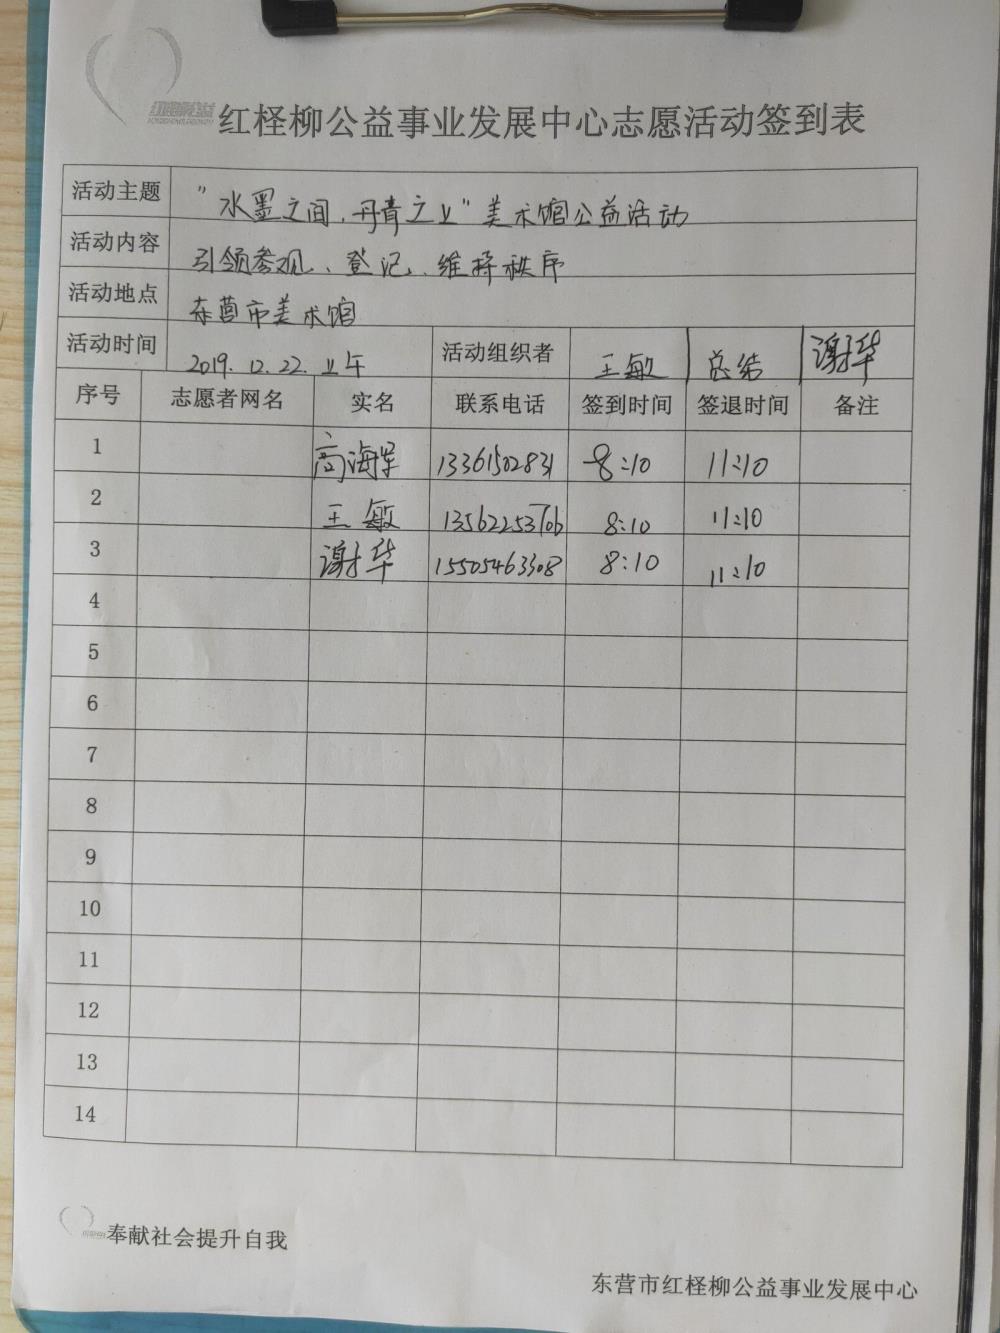 红柽柳公益
红柽柳公益事业发展中心志愿活动签到表
活动主题 "水墨之间,丹青之上"美术馆公益活动
活动内容 引领参观、登记、维持秩序
活动地点 东营市美术馆
活动时间 2019.12.22.上午 活动组织者 王敏 总结 谢华
序号 志愿者网名 实名 联系电话 签到时间 签退时间 备注
1 高海军 13361502831 8:10 11:10
2 王敏 13562253706 8:10 11:10
3 谢华 15505463308 8:10 11:10
4
5
6
7
8
9
10
11
12
13
14
奉献社会提升自我
东营市红柽柳公益事业发展中心